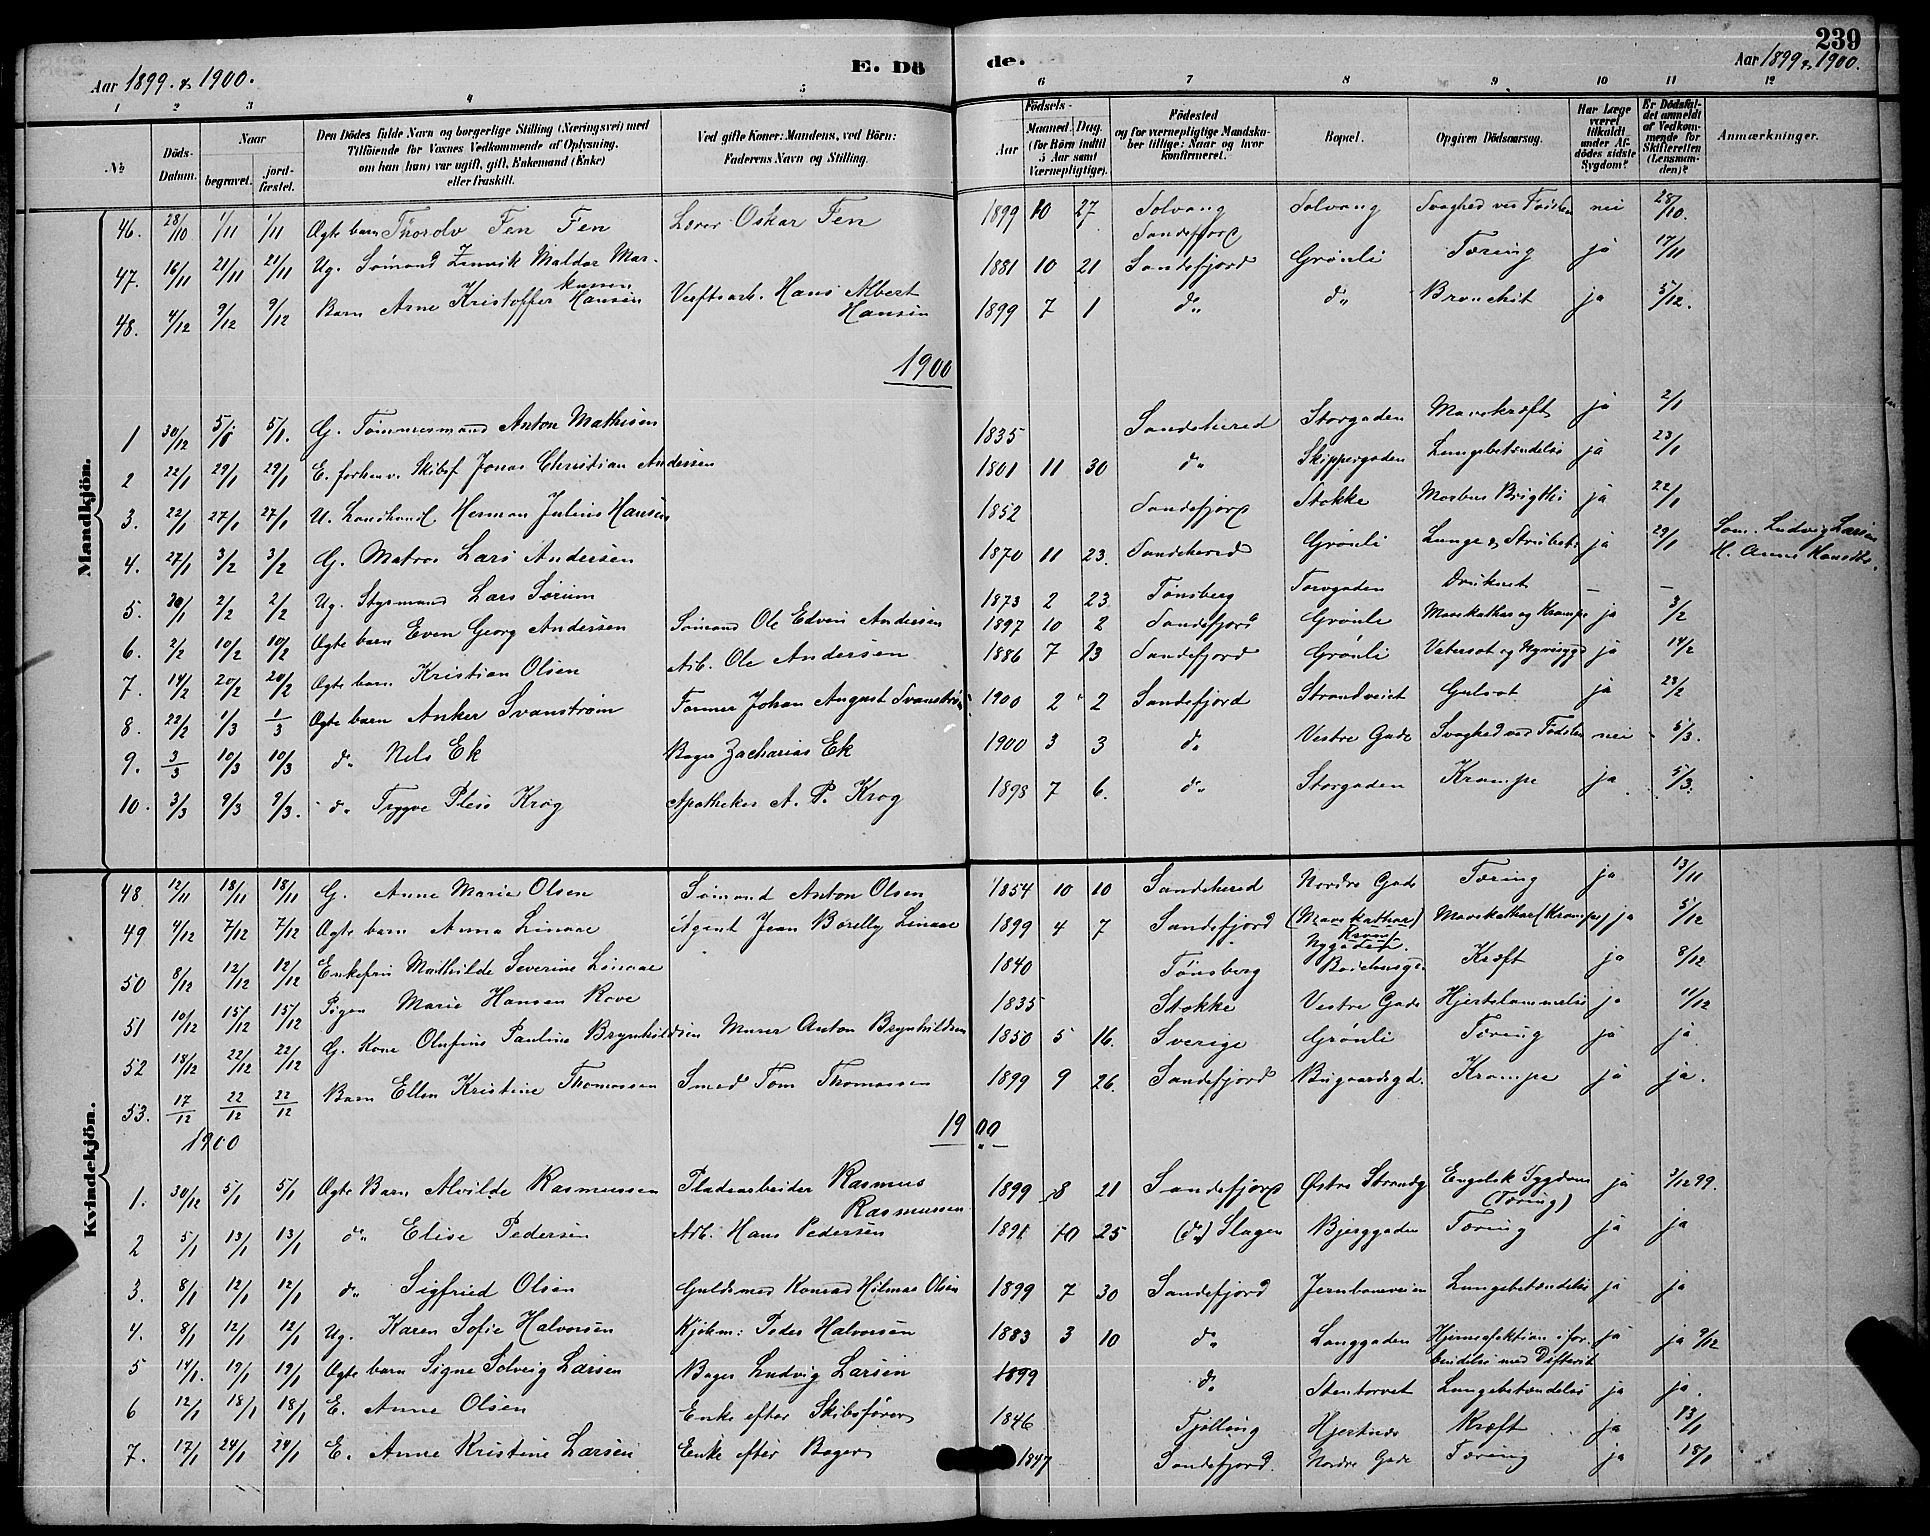 239
Aar 1899 & 1900. E. Dö de. Aar 1899 & 1900.
1 2 3 4 5 6 7 8 9 10 11 12
No. Döds-Datum. Naar begravet. jordfæstet. Den Dödes fulde Navn og borgerlige Stilling (Næringsvei) med Tilföiende for Voxnes Vedkommende af Oplysning, om han (hun) var ugift, gift, Enkemand (Enke) eller fraskilt. Ved gifte Koner: Mandens, ved Börn: Faderens Navn og Stilling. Födsels- Aar Maaned. Dag. (for Börn indtil 5 Aar samt Værnepligtige). Födested og for værnepligtige Mandskaber tillige: Naar og hvor konfirmeret. Bopæl. Opgiven Dödsaarsag. Har Læge været tilkaldt under Afdödes sidste Sygdom? Er Dödsfaldet anmeldt af Vedkommende for Skifteretten (Lensmanden)? Anmærkninger.
Mandkjön.
46. 28/10 1/11 1/11 Ægte barn Thorolv Fen Fen Lærer Oskar Fen 1899 10 27 Solvang Sandefjord Solvang Svaghed ved Fødselen nei 28/10.
47. 16/11 21/11 21/11 Ug. Sømand Waldar Markussen 1881 10 21 Sandefjord Grønli Tæring ja 17/11
48. 4/12 9/12 9/12 Barn Arne Kristoffer Hansen Verftsarb. Hans Albert Hansen 1899 7 1 d" d" Bronchit ja 5/12.
1900
1 30/12 5/1 5/1. G. Tømmermand Anton Mathisen 1835 Sandeherred Storgaden Mavekræft ja 2/1
2 22/1 29/1 29/1 E. forhenv. Skibsf. Jonas Christian Andersen 1801 11 30 d" Skippergaden Lungebetændelse ja 23/1
3. 22/1 27/1 27/1 U. Landhandl. Herman Julius Hansen 1852 Sandefjord Stokke Morbus Brigthi ja 22/1
4. 27/1 3/2 3/2 G. Matros Lars Andersen 1870 11 23. Sandeherred Grønli Lunge & Strubet. ja 29/1 Søm. Ludvig Larsen
5. 20/1 2/2 2/2 Ug. Styrmand Lars Sørum 1873 2 23 Tønsberg Torvgaden Druknet — —
6. 2/2 10/2 10/2 Ægte barn Even Georg Andersen Sømand Ole Edvin Andersen 1897 10 2 Sandefjord Grønli Mavekathar og Krampe ja 3/2
7. 14/2 20/2 20/2 Ægte barn Kristian Olsen Arb. Ole Andersen 1886 7 13 Sandefjord Grønli Vatersot og Nyresygd. ja 14/2
8. 22/2 1/3 1/3 Ægte barn Anker Svanstrøm Former Johan August Svanstrøm 1900 2 2 Sandefjord Strandveiet Gulsot ja 23/2
9. 3/3 10/3 10/3 d" Nils Ek Bager Zacharias Ek 1900 3 3 d" Vestre Gade Svaghed ved Fødslen nei 5/3.
10. 3/3 9/3 9/3. d" Trygve Pless Krog Apotheker A. P. Krog 1898 7 6. d" Storgaden Krampe ja 5/3.
Kvindekjön.
48 12/11 18/11 18/11 G. Anne Marie Olsen Sømand Anton Olsen 1854 10 10 Sandeherred Nordre Gade Tæring ja 13/11
49 4/12 7/12 7/12 Ægte barn Anna Linaae Agent Jean Borelly Linaae 1899 4 7 Sandefjord (Mavekathar) Kramp. Nygaden. Mavekathar (Krampe) ja 5/12
50 8/12 12/12 12/12 Enkefru Mathilde Severine Linaae 1840 Tønsberg Kræft ja 8/12
51 10/12 15/12 15/12 Pigen Marie Hansen Rove 1835 Stokke Vestre Gade Hjertelammelse ja 11/12
52 18/12 22/12 22/12 G. Kone Olufine Pauline Brynhildsen Murer Anton Brynhildsen 1850 5 16. Sverige Grønli Tæring ja ja
53. 17/12 22/12 22/12 Barn Ellen Kristine Thomassen Smed Tom Thomassen 1899 9 26. Sandefjord Bugaardsgd. Krampe ja ja.
1900 1900
1. 30/12 5/1 5/1 Ægte Barn Alvilde Rasmussen Pladsarbeider Rasmus Rasmussen 1899 8 21 Sandefjord Østre Strandg. Engelsk Sygdom (Tæring) ja 3/12 99.
2 5/1 13/1 13/1 d" Elise Pedersen Arb. Hans Pedersen 1891 10 25 (d") Slagen Bjerggaden Tæring ja ja
3. 8/1 12/1 12/1 d" Sigfried Olsen Guldsmed Konrad Hilmar Olsen 1899 7 30 Sandefjord Jernbaneveien Lungebetændelse ja ja
4. 8/1 12/1 12/1 Ug. Karen Sofie Halvorsen Kjøbm: Peder Halvorsen 1883 3 10 d" Langgaden Hjerneafektion i forbindelse med Difterit ja ja 9/12
5 14/1. 19/1 19/1 Ægte barn Signe Solveig Larsen Bager Ludvig Larsen 1899 d" Stentorvet Lungebetændelse ja ja.
6 12/1 18/1 18/1 E. Anne Olsen Enke efter Skibsfører 1846 Tjølling Hjertnes Kræft ja 13/1
7. 17/1 24/1 24/1 E. Anne Kristine Larsen Enke efter Bager 1847 Sandefjord. Nordre Gade Tæring ja 18/1